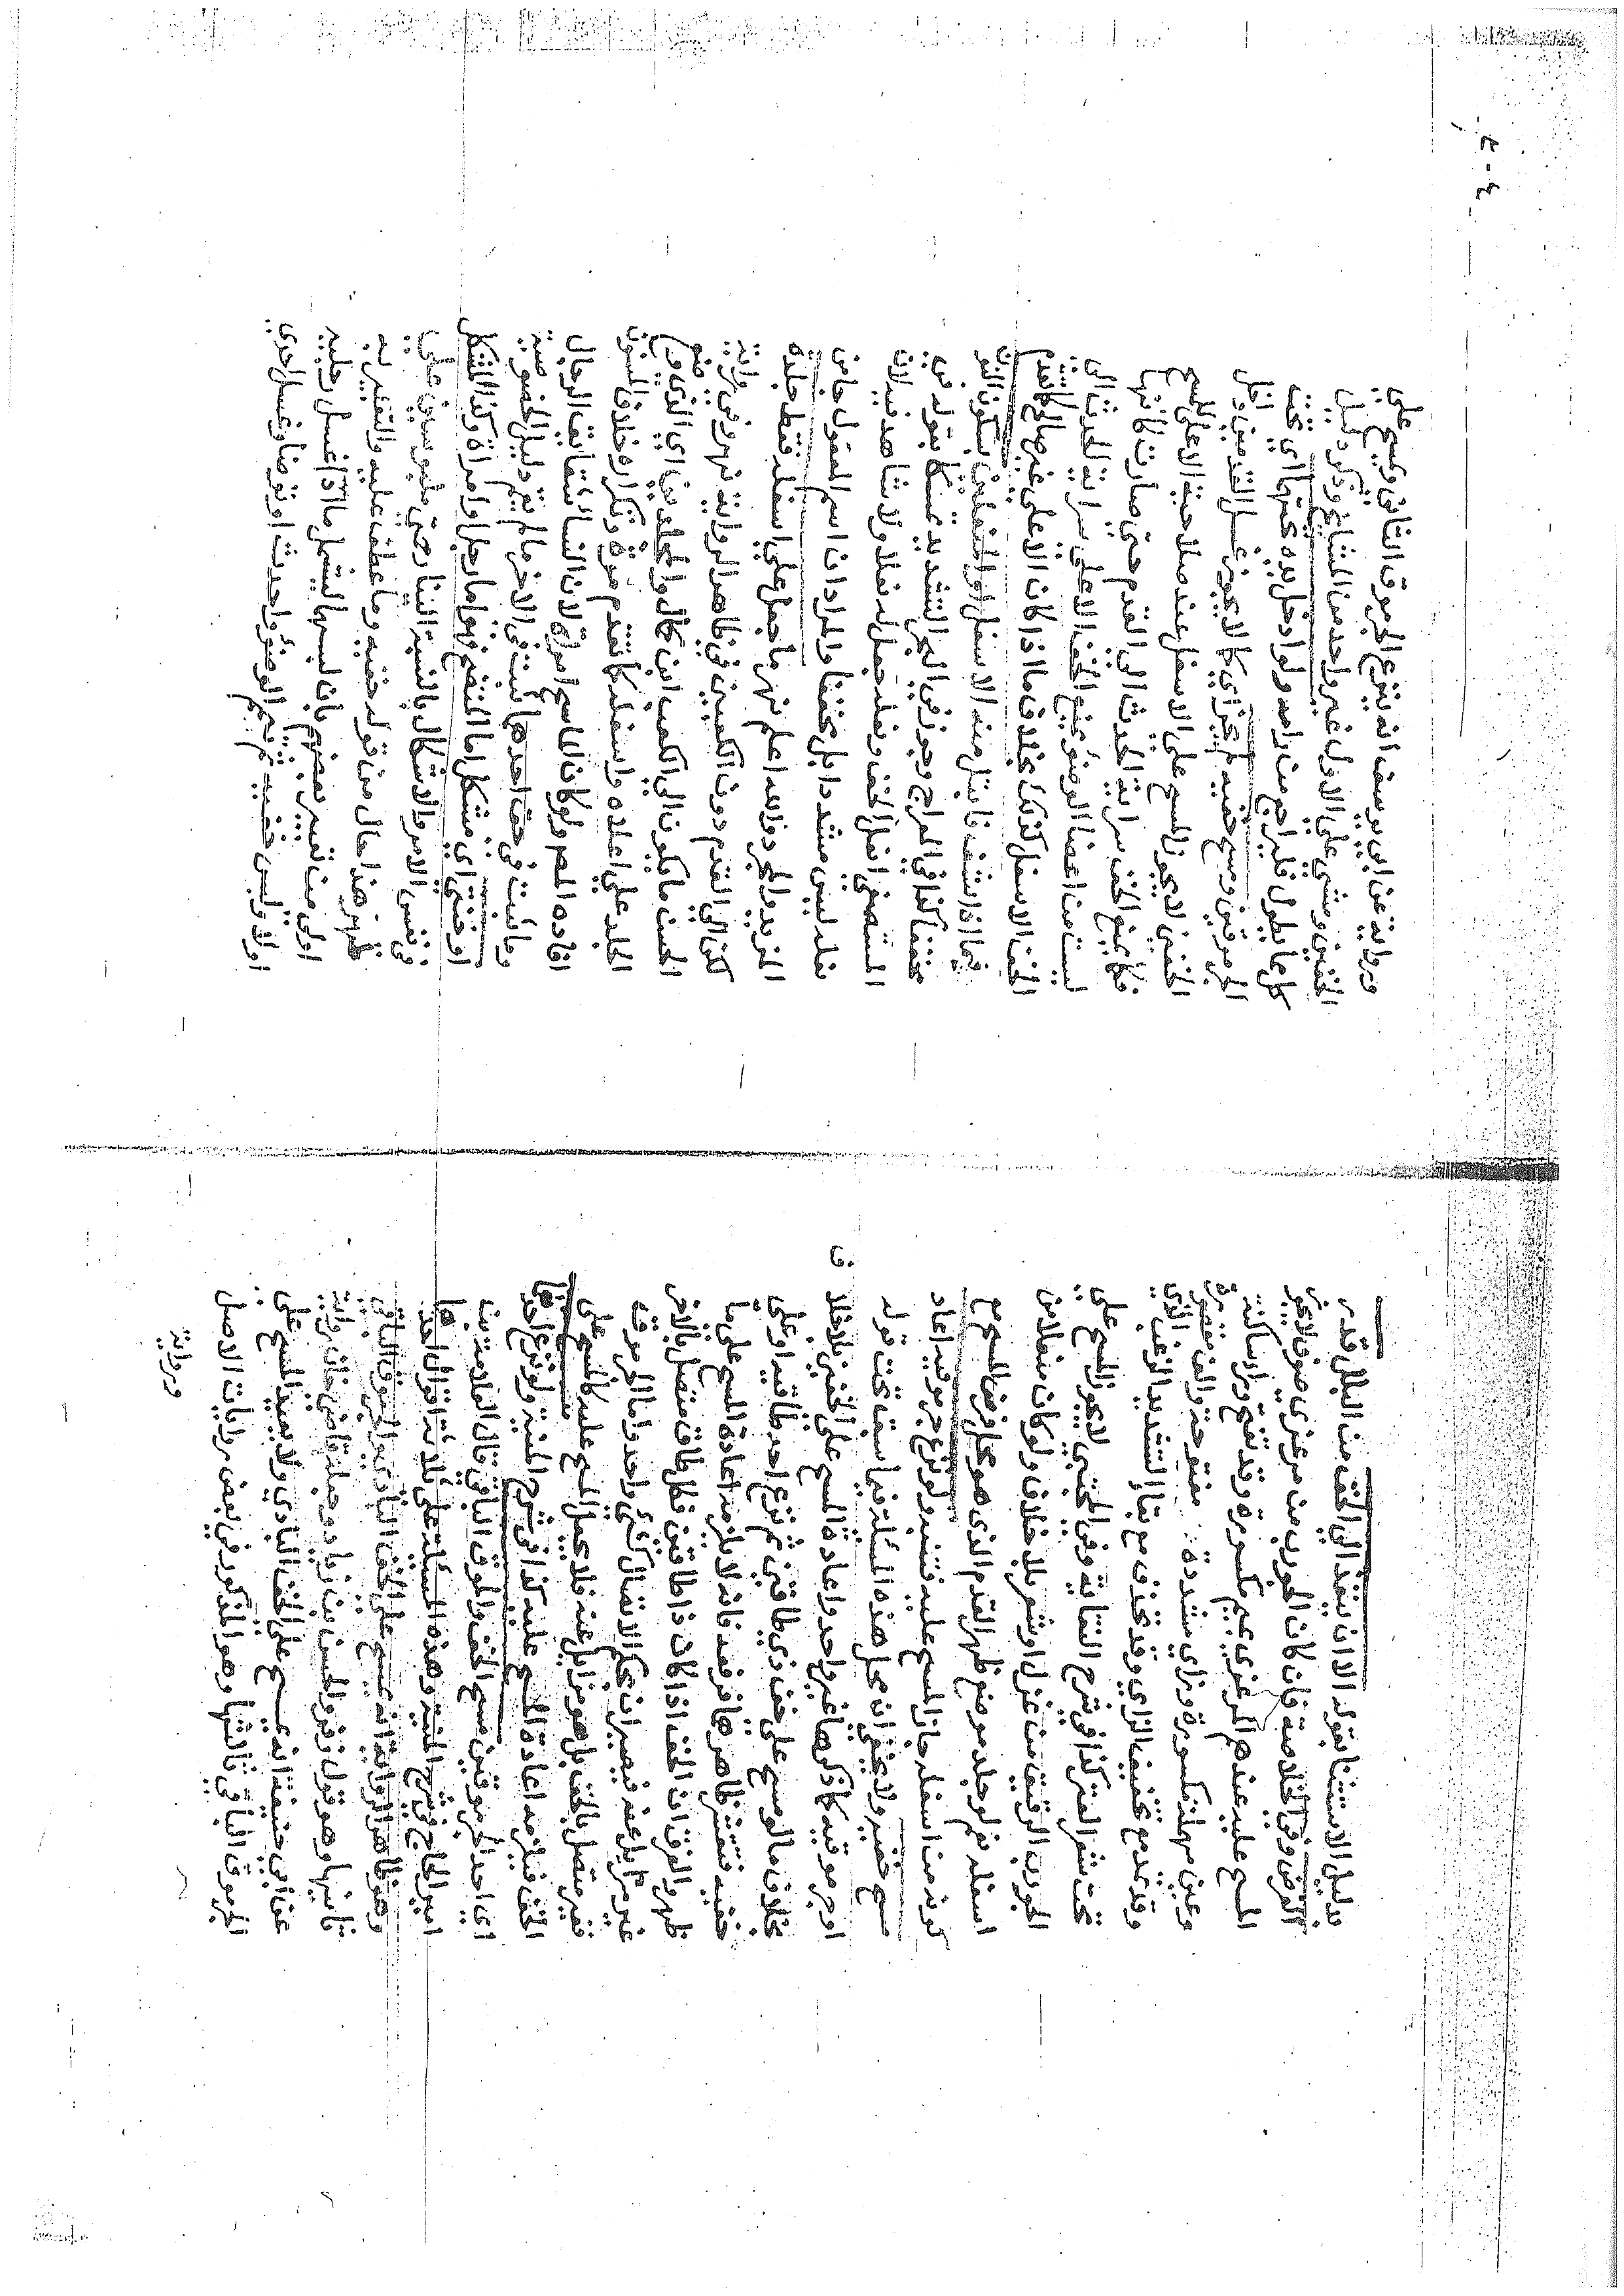 فدليل الاستثنا بقوله الا ان ينفذ الي الخف من البلل قدر
الفرض وفي الخلاصة فان كان الجورب من مرعزي صوف لا يجوز
المسح عليه عندهم المرعزي بميم مكسورة وقد تفتح وراء ساكنة
وعين مهملة مكسورة وزاي مشددة مفتوحة والف مقصورة
وقد يمد مع تخفيف الزاي وقد تحذف مع بقا التشديد الزغب الذي
تحت شعر العنز كذا في شرح النقاية وفي المجتبي لا يجوز المسح علي
الجورب الرقيق من غزل او شعر بلا خلاف ولو كان منعلا من
اسفله فلو جلد موضع ظهر القدم الذي هو محل فرض المسح مع
كونه من اسفله جاز المسح عليه فتنبه ولو نزع جرموقيه اعاد
مسح خفيه ولا يخفي ان محل هذه المسئلة فيما سبق تحت قوله
او جرموقيه كما ذكرها غير واحد واعادة المسح علي الخفين بلا خلاف
بخلاف ما لو مسح علي خف ذي طاقين ثم نزع احد طاقيه او علي
خفيه فتقشر ظاهرهما فرفعه فانه لا يلزمه اعادة المسح علي ما
ظهر والفرق ان الخف اذا كان ذا طاقين فكل طاق متصل بالاخر
غير مزايل عنه فيصيران بحكم الاتصال كشئ واحد واما الجرموق
فغير متصل بالخف بل هو مزايل عنه فلا يجعل المسح عليه كالمسح علي
الخف فيلزمه اعادة المسح عليه كذا في شرح المنية ولو نزع احدهما
اي احد الجرموقين مسح الخف والموق الباقي قال العلامة بن
امير الحاج في شرح المنية وهذه المسئلة علي ثلاثة اقوال احدها
وهو ظاهر الرواية انه يمسح علي الخف البادي والجرموق الباقي
ثانيها وهو قول زفر والحسن بن زياد وجعله قاضي خان رواية
عن ابي حنيفة انه يمسح علي الخف البادي ولا يعيد المسح علي
الجرموق الباقي ثالثها وهو المذكور في بعض روايات الاصل
ورواية
ورواية عن ابي يوسف انه ينزع الجرموق الثاني ويمسح علي
الخفين ومشي علي الاول غير واحد من المشايخ وذكر دليل
كل بما يطول فليراجع من رامه ولو ادخل يده تحتهما اي تحت
الجرموقين ومسح خفيه لم يجز اي كما لا يجوز غسل القدمين داخل
الخفين لا يجوز المسح علي الاسفل عند صلاحية الاعلي للمسح
فكما يمنع الخف سراية الحدث الي القدم حتي صارت كانها
ليست من اعضا الوضوء يمنع الخف الاعلي سراية الحدث الي
الخف الاسفل كذلك بخلاف ما اذا كان الاعلي غير صالح كما تقدم
فيما اذا نشف فابتل منه الاسفل او المنعلين بسكون النون
مخففا كذا في المعراج وجوز في البحر التشديد تمسكا بقوله في
المستصفى انعل الخف ونعله جعل له نعلا ولا شاهد فيه لان
نعله ليس مشددا بل مخففا والمراد ان اسم المفعول جا من
المزيد والمجرد والله اعلم ثم ما جعل علي اسفله فقط جلدة
القدم دون الكعبين في ظاهر الرواية وفي رواية
الحسن ما يكون الي الكعب ابن كمال والمجلدين اي الذي وضع
الجلد علي اعلاه واسفله كما تقدم مرة وتكراره خلاف المسنون
افاده المص ولو كان الماسح امراة لان النسا شقايق الرجال
في حق احدهما في الاخر ما لم يقم دليل الخصوصية
او خنثي اي مشكل اما المتضح فهو اما رجل او امراة وكذا المشكل
في نفس الامر والاشكال بالنسبة الينا
هذا حال من قوله خفيه وما عطف عليه والتعبير به
اولي من تعبير بعضهم بان لبسهما ليشمل ما اذا غسل رجليه
اولا ولبس خفيه ثم تمم الوضوء او احدث او توضا وغسل احدي